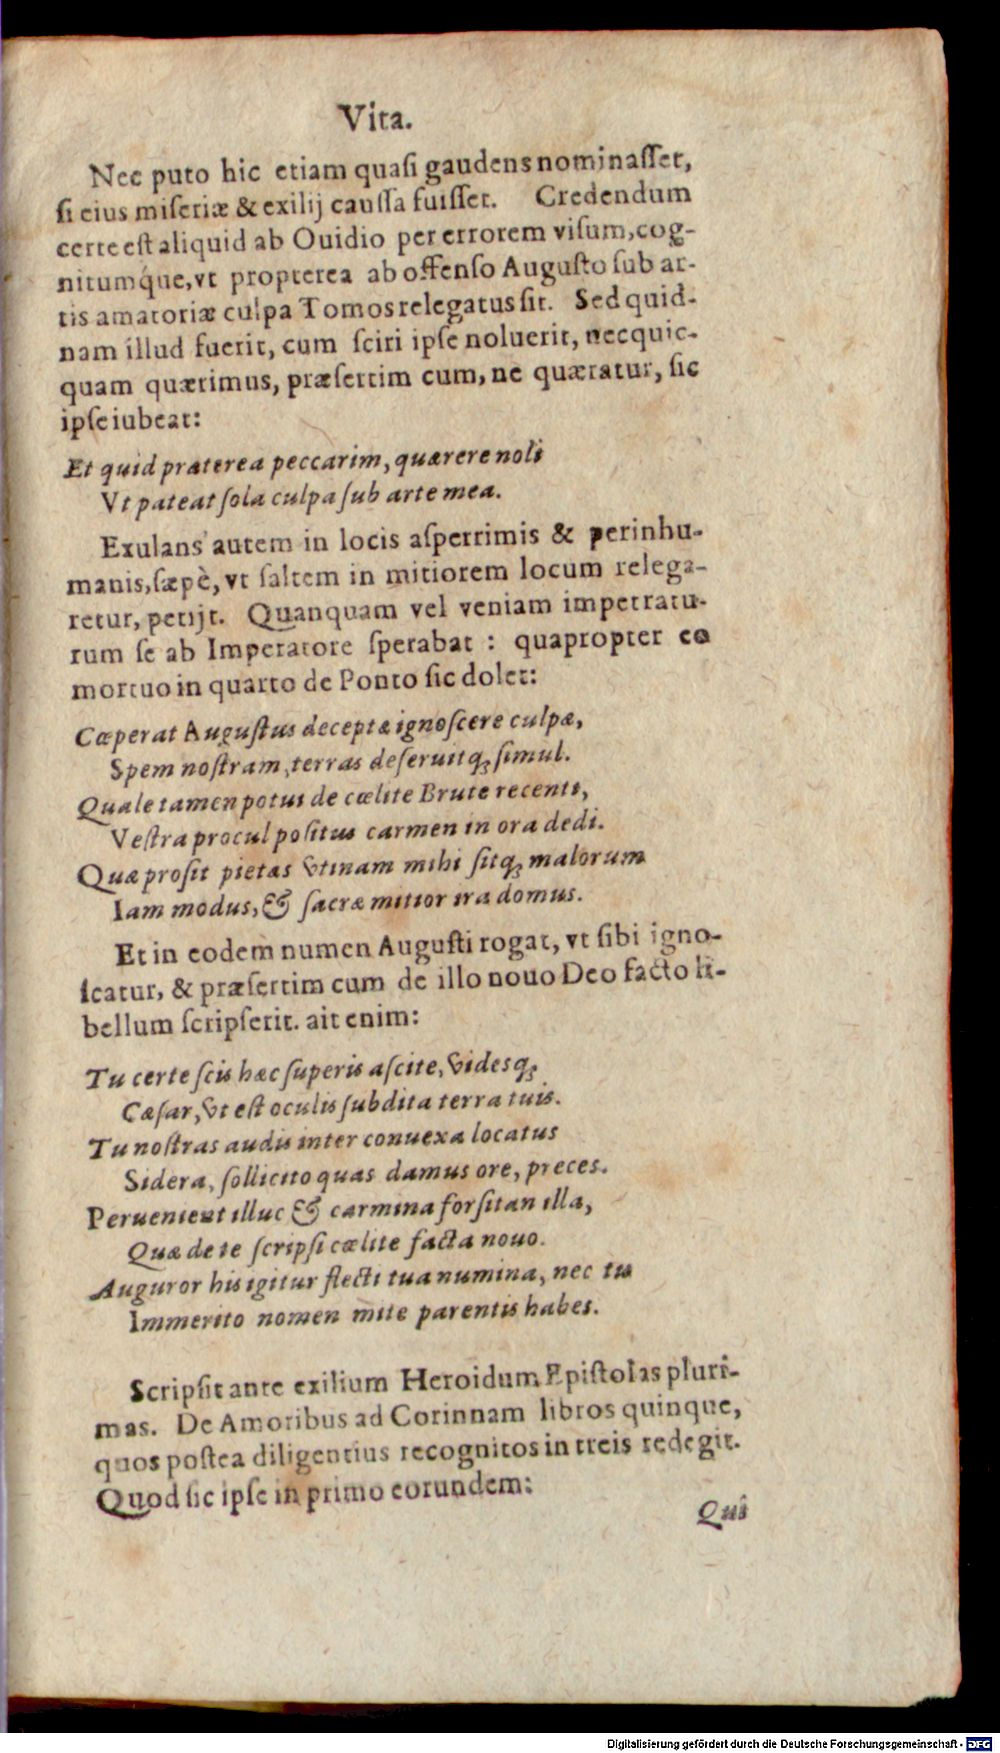 Vita.
Nec puto hic etiam quaſi gaudens nominaſſet,
ſi eius miſeriæ & exilij cauſſa fuiſſet. Credendum
certe eſt aliquid ab Ouidio per errorem viſum, cog-
nitumq́ue, vt propterea ab offenſo Auguſto ſub ar-
tis amatoriæ culpa Tomos relegatus ſit. Sed quid-
nam illud fuerit, cum ſciri ipſe noluerit, nec quic-
quam quærimus, præſertim cum, ne quæratur, ſic
ipſe iubeat:
Et quid præterea peccarim, quærere noli
Vt pateat ſola culpa ſub arte mea.
Exulans autem in locis aſperrimis & perinhu-
manis, ſæpè, vt ſaltem in mitiorem locum relega-
retur, petijt. Quanquam vel veniam impetratu-
rum ſe ab Imperatore ſperabat : quapropter eo
mortuo in quarto de Ponto ſic dolet:
Cœperat Auguſtus deceptæ ignoſcere culpæ,
Spem noſtram, terras deſeruitq; ſimul.
Quale tamen potui de cœlite Brute recenti,
Veſtra procul poſitus carmen in ora dedi.
Quæ proſit pietas vtinam mihi ſitq; malorum
Iam modus, & ſacræ mitior ira domus.
Et in eodem numen Auguſti rogat, vt ſibi igno-
ſcatur, & præſertim cum de illo nouo Deo facto li-
bellum ſcripſerit. ait enim:
Tu certe ſcis hæc ſuperis aſcite, videsq;
Cæſar, vt eſt oculis ſubdita terra tuis.
Tu noſtras audis inter conuexa locatus
Sidera, ſollicito quas damus ore, preces.
Peruenient illuc & carmina forſitan illa,
Quæ de te ſcripſi cœlite facta nouo.
Auguror his igitur flecti tua numina, nec tu
Immerito nomen mite parentis habes.
Scripſit ante exilium Heroidum Epiſtolas pluri-
mas. De Amoribus ad Corinnam libros quinque,
quos poſtea diligentius recognitos in treis redegit.
Quod ſic ipſe in primo eorundem:
Qui
Digitalisierung gefördert durch die Deutsche Forschungsgemeinschaft - DFG